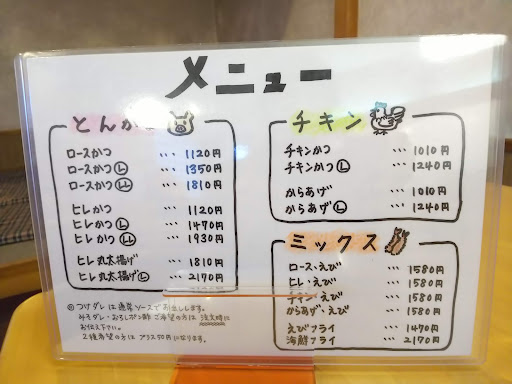 メニュー
とんかつ
ロースかつ … 1120円
ロースかつ Ⓛ … 1350円
ロースかつ LL … 1810円
ヒレかつ … 1120円
ヒレかつ Ⓛ … 1470円
ヒレかつ LL … 1930円
ヒレ丸太揚げ … 1810円
ヒレ丸太揚げ Ⓛ … 2170円
◎つけダレは通常ソースでお出しします。
みそダレ・おろしポン酢ご希望の方は注文時に
お伝え下さい。
2種希望の方はプラス50円になります。
チキン
チキンかつ … 1010円
チキンかつ Ⓛ … 1240円
からあげ … 1010円
からあげ Ⓛ … 1240円
ミックス
ロース・えび … 1580円
ヒレ・えび … 1580円
チキン・えび … 1580円
からあげ・えび … 1580円
えびフライ … 1470円
海鮮フライ … 2170円